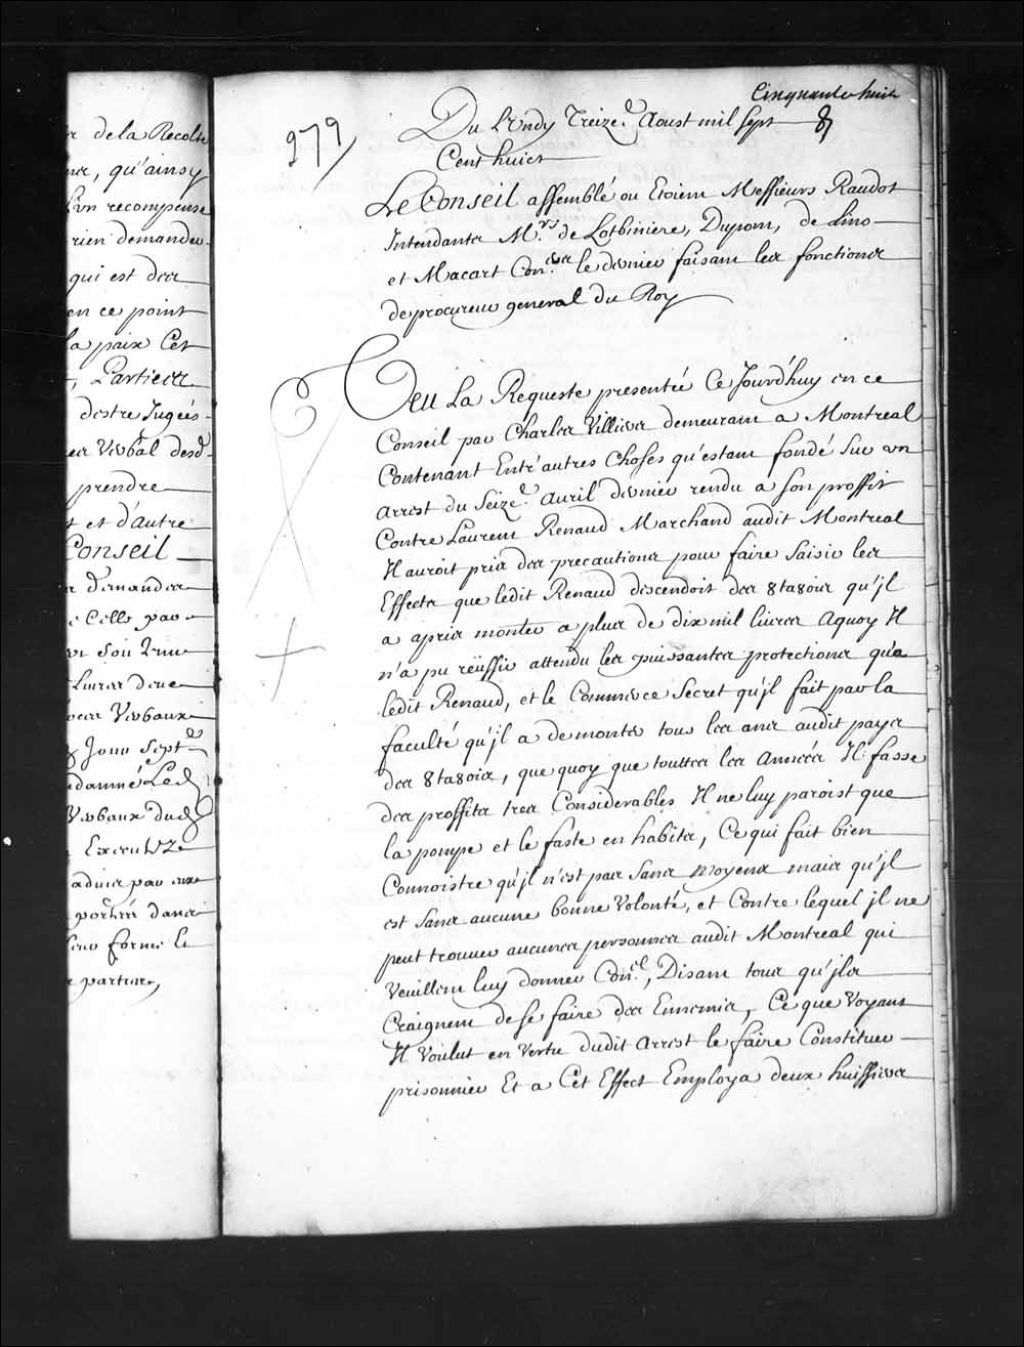 de la Recolte
qu'ainsy
recompense
rien demander
qui est des
en ce point
la paix Cet
Parties
destre Jugées
Verbal desd
prendre
et d'autre
Conseil
demandes
Celle par
soû
Livres
Verbaux
Jour Septe
Led
Verbaux dud

par
dans
forme le
parties,
Cinquante huit
979
Du Lundy Treize.e Aoust mil sept 8
Cent huict
Le Conseil assemblé ou Etoient Messieurs Raudot
Intendants M.rs de Lotbiniere, Dupont, de Lino
et Macart Con.ers le dernier faisant les fonctions
de procureur general du Roy
Veu La Requeste presentée Ce Jourd'huy en ce
Conseil par Charles Villiers demeurant a Montreal
Contenant Entr'autres Choses qu'estant fondé sur un
arrest du Seize.e avril dernier rendu a son proffit
Contre Laurent Renaud Marchand audit Montreal
Il auroit pris des precautions pour faire saisir les
Effects que ledit Renaud descendoit des 8ta8ois qu'jl
a apris monter a plus de dix mil livres Aquoy Il
n'a pu reüssir attendu les puissantes protections qu'a
ledit Renaud, et le Commerce Secret qu'jl fait par la
faculté qu'jl a de monter tous les ans audit pays
des 8ta8ois, que quoy que touttes les Années Il fasse
des proffits tres Considerables Il ne luy paroist que
la pompe et le faste en habits, Ce qui fait bien
Connoistre qu'jl n'est pas sans moyens mais qu'jl
est sans aucune bonne Volonté, et Contre lequel jl ne
peut trouver aucunes personnes audit Montreal qui
Veuillent luy donner Con.el, Disant tous qu'jls
Craignent de se faire des Ennemis, Ce que Voyant
Il Voulut en Vertu dudit arrest le faire Constituer
prisonnier Et a Cet Effect Employa deux huissiers